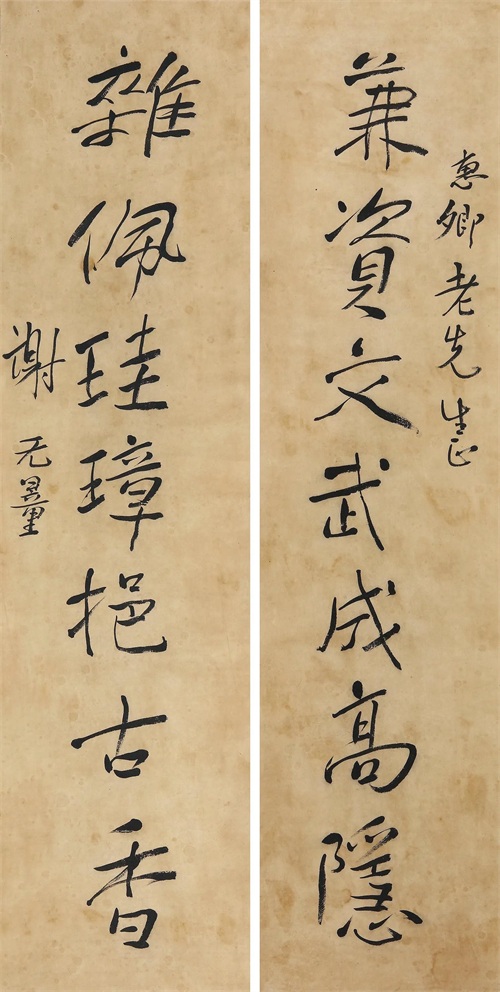 惠卿老先生正
兼資文武成高隱
雜佩珪璋挹古香
謝无量